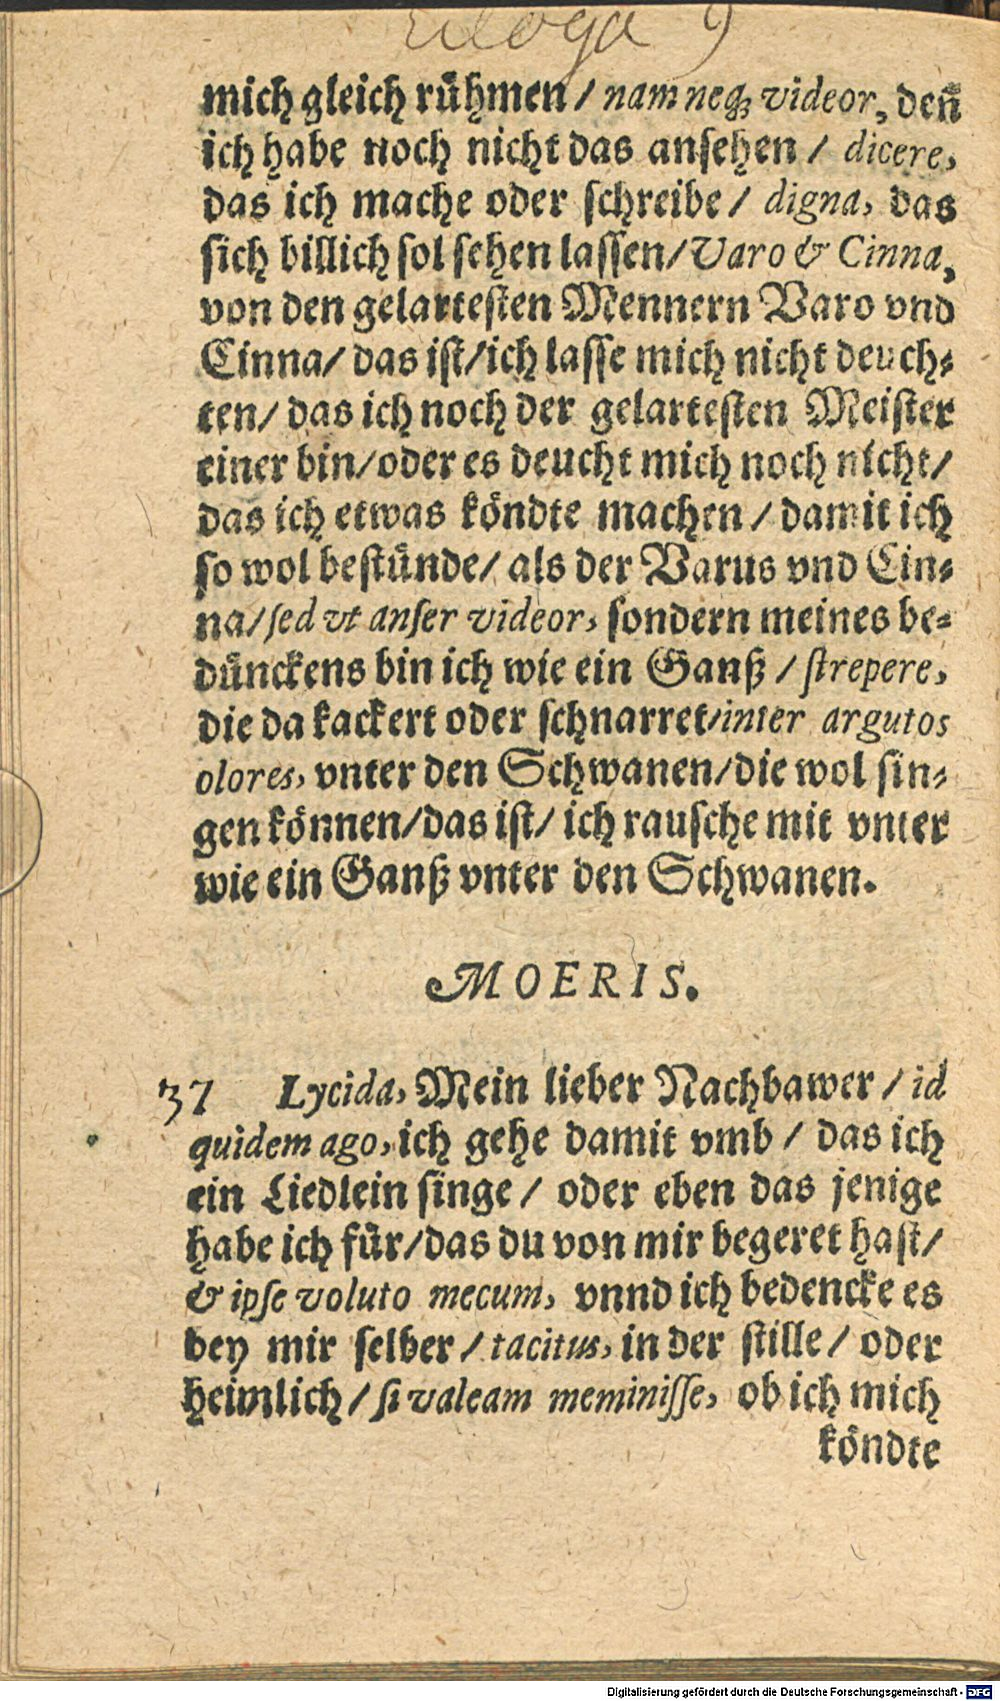 Ecloga 9
mich gleich rühmen / nam neq; videor, deñ
ich habe noch nicht das ansehen / dicere,
das ich mache oder schreibe / digna, das
sich billich sol sehen lassen / Varo & Cinna,
von den gelartesten Mennern Varo vnd
Cinna / das ist / ich lasse mich nicht deuch⸗
ten / das ich noch der gelartesten Meister
einer bin / oder es deucht mich noch nicht /
das ich etwas köndte machen / damit ich
so wol bestünde / als der Varus vnd Cin⸗
na / sed vt anser videor, sondern meines be⸗
dünckens bin ich wie ein Ganß / strepere,
die da kackert oder schnarret / inter argutos
olores, vnter den Schwanen / die wol sin⸗
gen können / das ist / ich rausche mit vnter
wie ein Ganß vnter den Schwanen.
MOERIS.
37 Lycida, Mein lieber Nachbawer / id
quidem ago, ich gehe damit vmb / das ich
ein Liedlein singe / oder eben das jenige
habe ich für / das du von mir begeret hast /
& ipse voluto mecum, vnnd ich bedencke es
bey mir selber / tacitus, in der stille / oder
heimlich / si valeam meminisse, ob ich mich
köndte
Digitalisierung gefördert durch die Deutsche Forschungsgemeinschaft - DFG